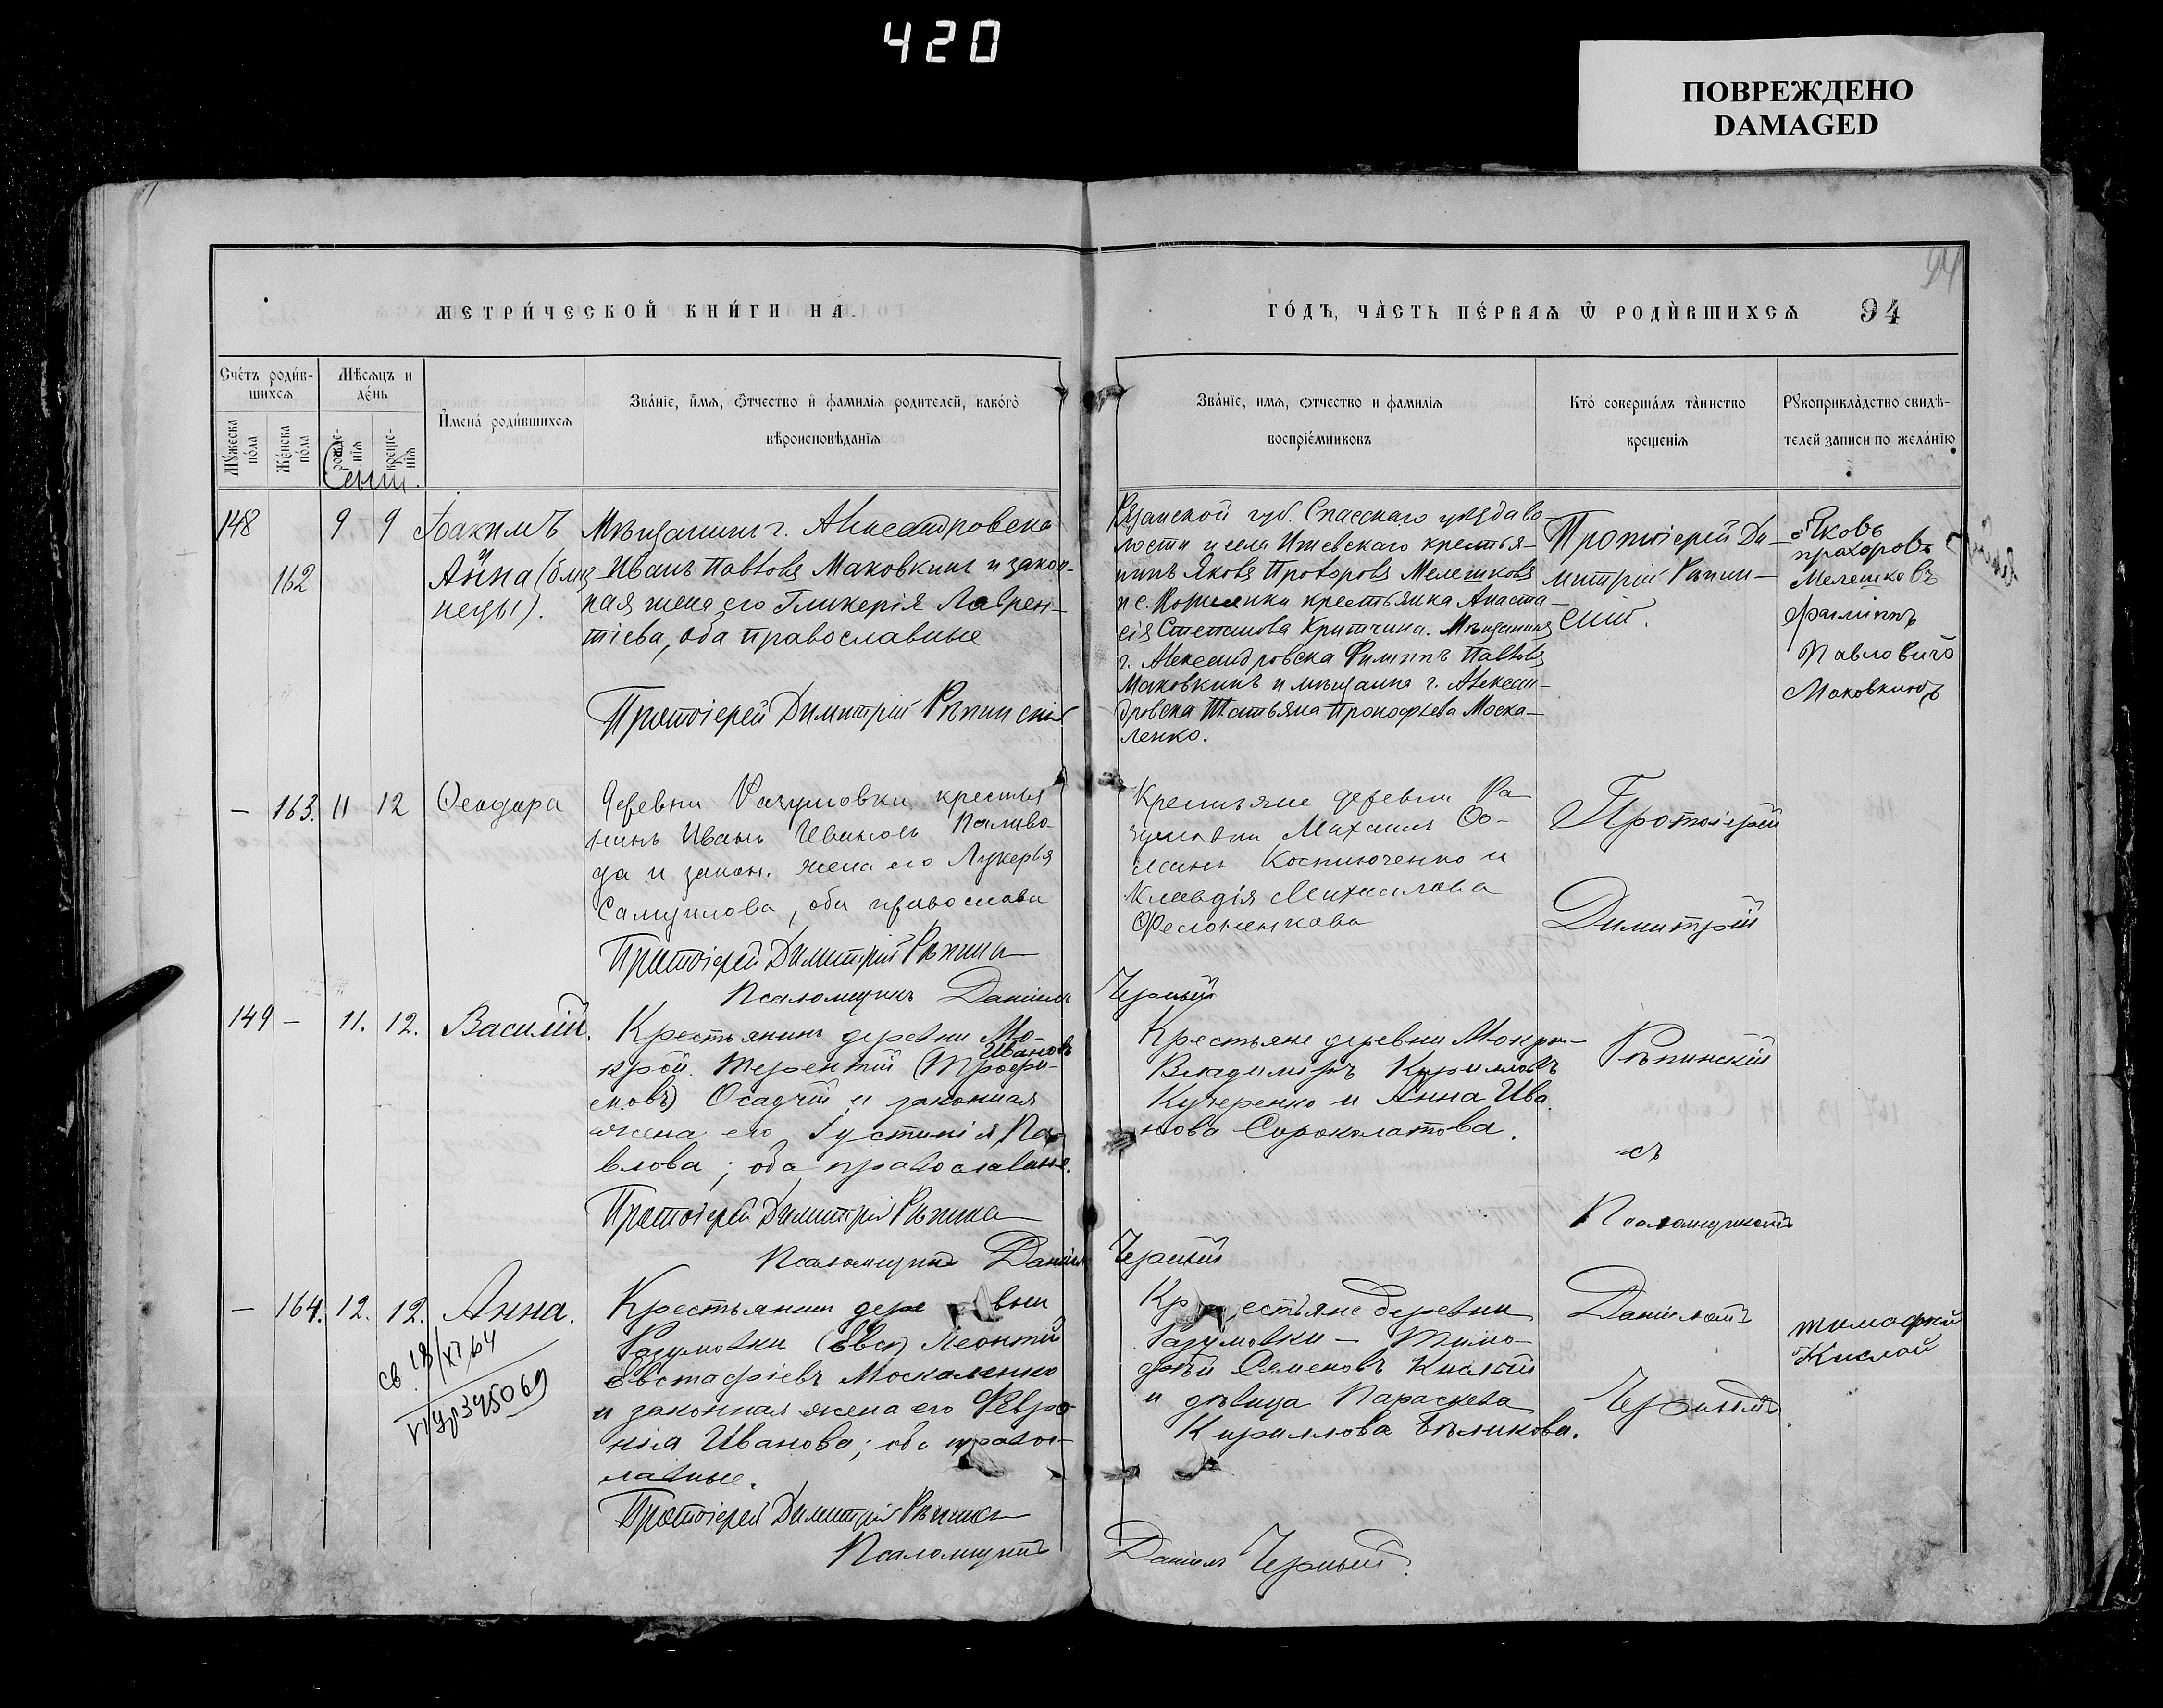 420
ПОВРЕЖДЕНО
DAMAGED
94
МЕТРИ́ЧЕСКОЙ КНИ́ГИ НА
ГО́ДЪ, ЧА̀СТЬ ПЕ́РВАѦ Ѿ РОДИ́ВШИХСѦ 94
Сче́тъ роди́в-
шихсѧ
Мꙋ́жеска по́ла
Же́нска по́ла
Мѣ́сѧцъ и
де́нь
рожде-
нїѧ
креще-
нїѧ
Сент.
И҆мена̀ роди́вшихсѧ
Зва́нїе, и҆́мѧ, ѻ҆́тчество и҆ фамилїѧ родителей, како́гѡ
вѣроисповѣданїѧ
Зва́нїе, имѧ, ѻтчество и фамилїѧ
воспрїе́мниковъ
Кто́ соверша́лъ та́инство
креще́нїѧ
Рꙋкоприкла́дство свидѣ-
телей записи по жела́нїю
148 9 9 Іоакимъ
162 Анна (близ-
нецы).
Мѣщанинъ г. Александровска
Иванъ Павловъ Маковкинъ и закон-
ная жена его Гликерія Лаврен-
тіева, оба православные
Протоіерей Димитрій Рѣпинскій
Рязанской губ. Спасскаго уѣзда во-
лости и села Ижевскаго крестья-
нинъ Яковъ Прохоровъ Мелешковъ
и с. крестьянка Анаста-
сія Степанова Критчина. Мѣщанинъ
г. Александровска Филиппъ Павловъ
Маковкинъ и мѣщанка г. Алексан-
дровска Татьяна Прокофьева Моска-
ленко.
Протоіерей Ди-
митрій Рѣпин-
скій.
Яковъ
прохоровъ
Мелешковъ
Филиппъ
Павловичъ
Маковкинъ
— 163. 11 12 Ѳеодора
Деревни Разумовки крестья
нинъ Иванъ Ивановъ Паливо-
да и закон. жена его Лукерья
Самуилова, оба православн
Протоіерей Димитрій Рѣпинс
Псаломщикъ Даніилъ Черный
Крестьяне деревни Ра
зумовки Михаилъ Ѳо-
минъ Костюченко и
Клавдія Михаилова
Протоіерей
Димитрій
149 — 11. 12. Василій.
Крестьянинъ деревни Мо-
Ивановъ
крой Терентій (Трофи-
мовъ) Осадчій и законная
жена его Іустинія Па-
влова; оба православные.
Протоіерей Димитрій Рѣпинс
Псаломщикъ Даніилъ Черный
Крестьяне деревни Мокрой
Владиміръ Кирилловъ
Кучеренко и Анна Ива
нова Сороколатова.
Рѣпинскій
съ
Псаломщикомъ
— 164. 12. 12. Анна.
св 18/XI 64
395069
Крестьянинъ дере вни
Разумовки (Евст) Леонтій
Евстафіевъ Москаленко
и законная жена его Февро-
нія Иванова; оба правос-
лавные.
Протоіерей Димитрій Рѣпинс
Псаломщикъ
Даніилъ Черный.
Кр естьяне деревни
Разумовки — Тимо-
фей Семеновъ Кислый
и дѣвица Параскева
Кириллова Бѣликова.
Даніиломъ
Чернымъ.
тимофей
Кислой